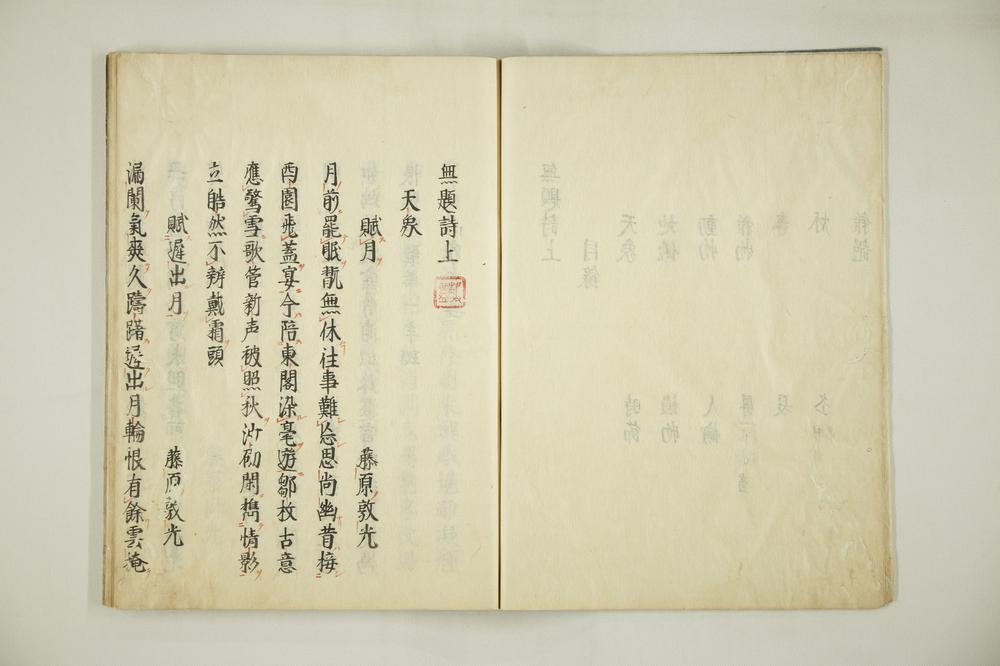 無題詩上
天象
賦月 藤原敦光
月前罷眠翫無休往事難忩思尚幽昔接
西園飛蓋宴今陪東閣染毫遊鄒枚古意
應驚雪歌管新声被照秋沙砌閑携情影
立皓然不辨戴霜頭
賦遅出月 藤原敦光
漏闌氣爽久躊躇遅出月輪恨有餘雲掩